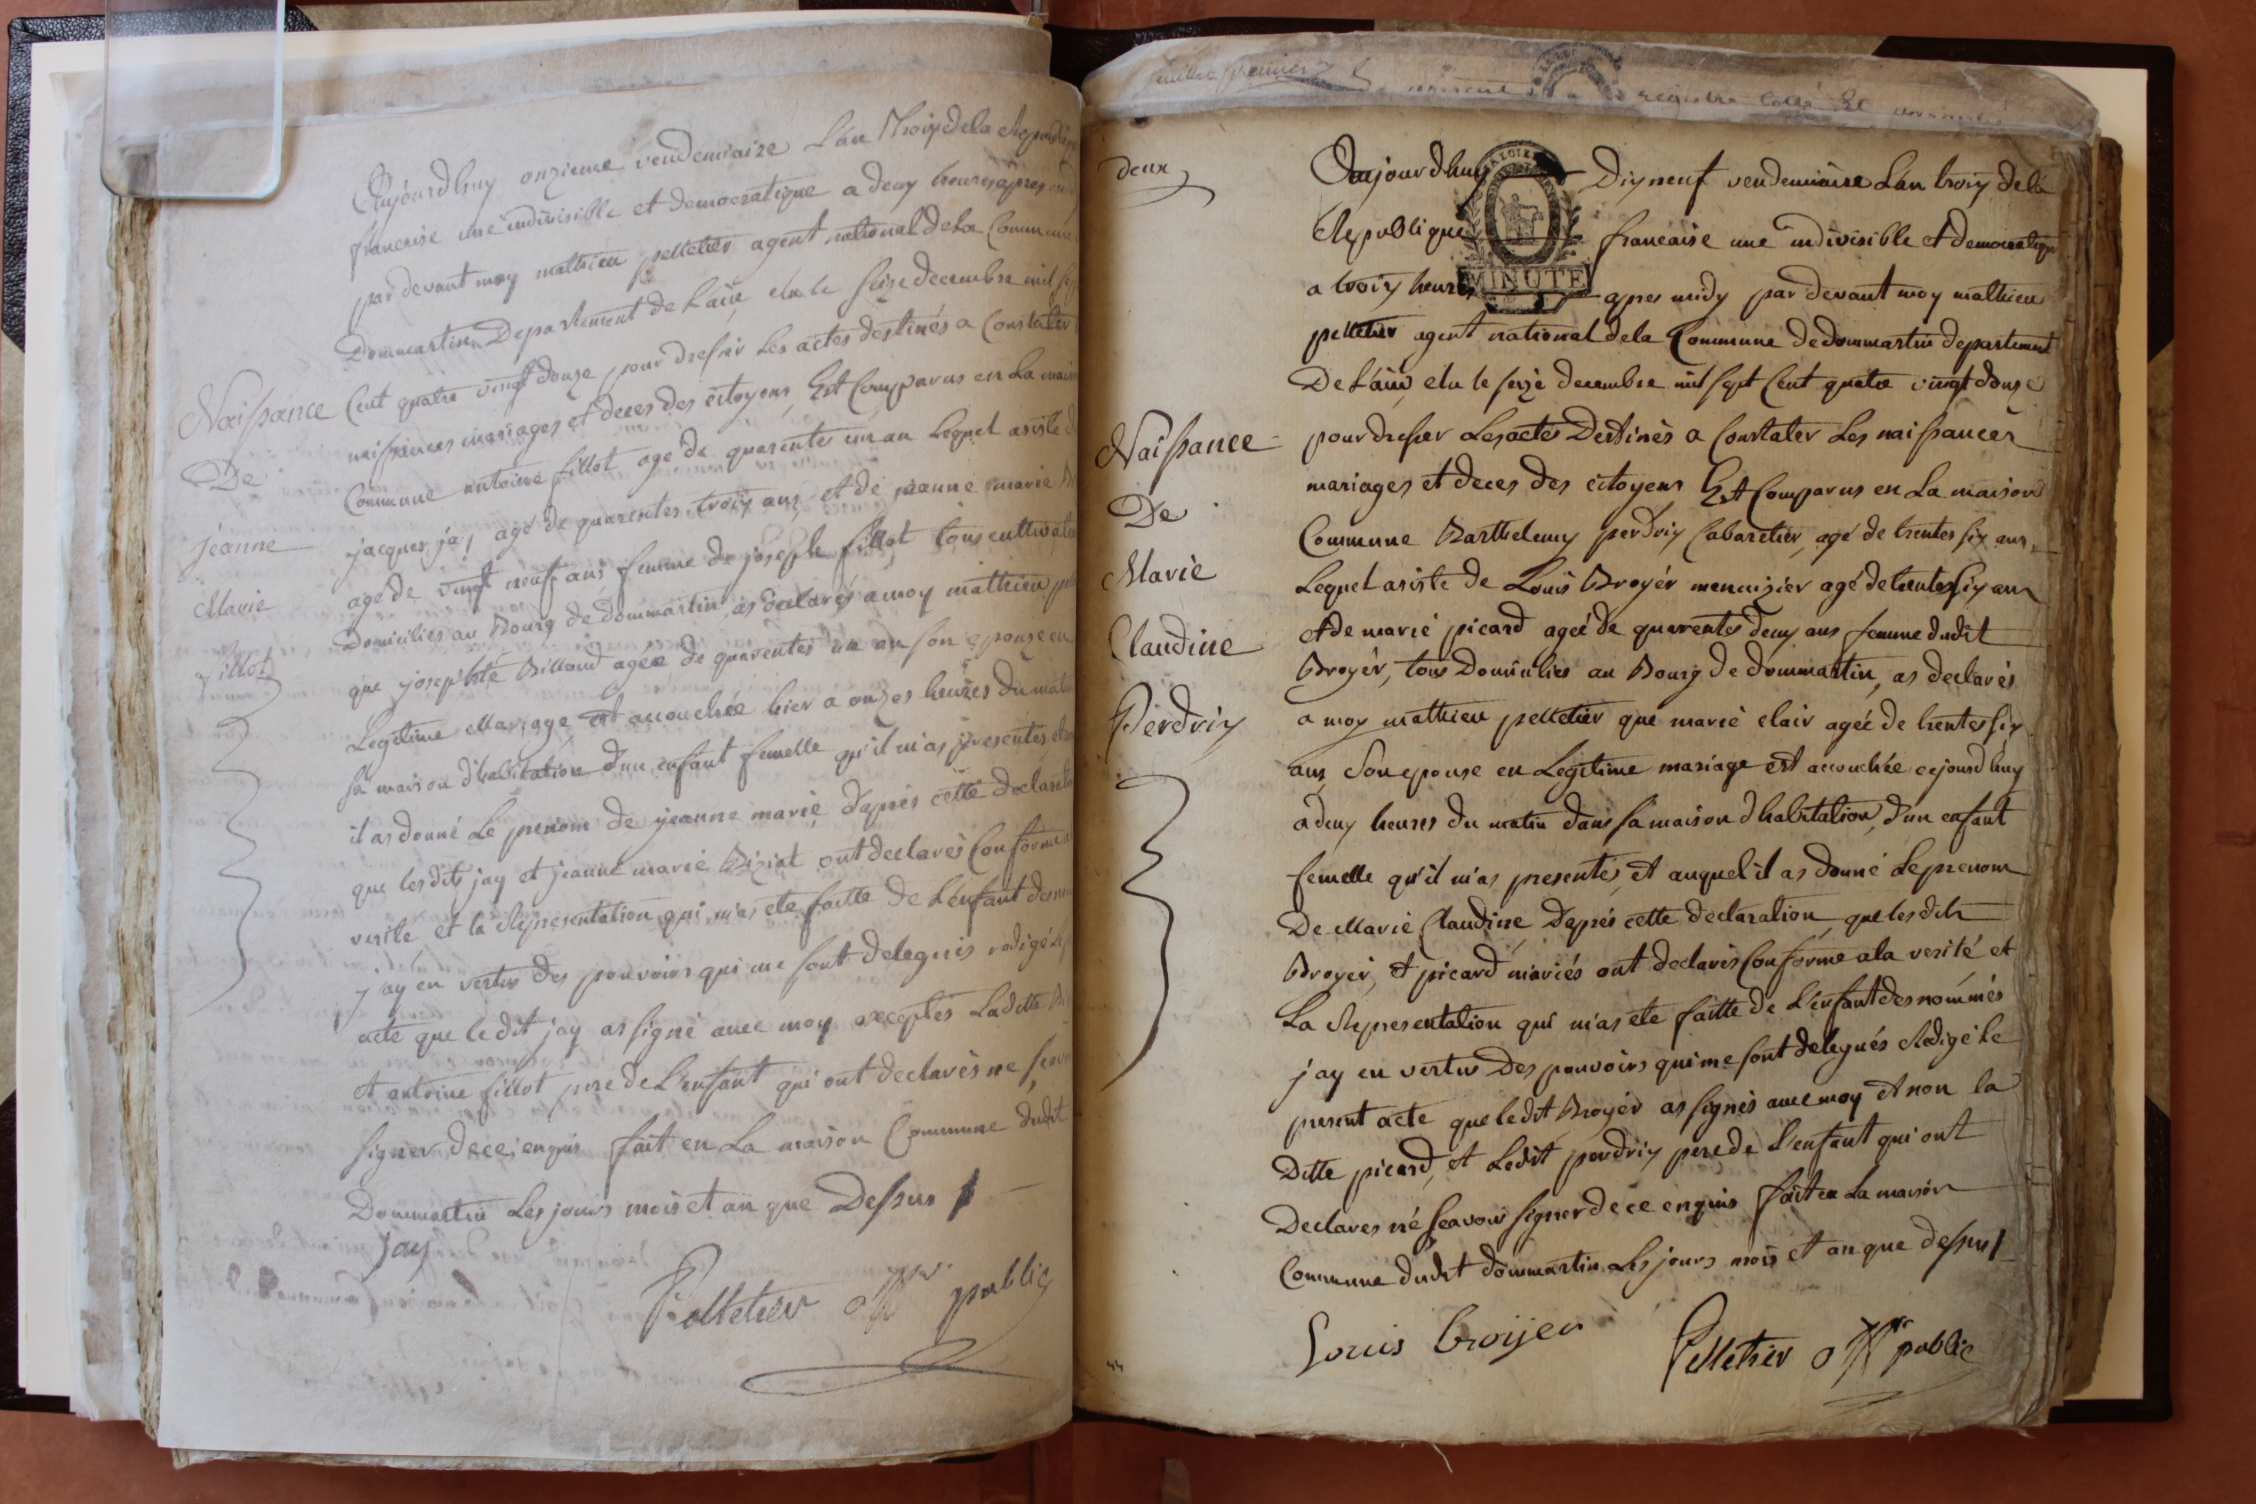 Aujourdhuy onzieme vendemiaire L'an Troix de la
francaise une indivisible et democratique a deux heures apres
par devant moy mathieu pelletier agent national de la Commune
Dommartin Departement de L'ain elu le seize decembre mil
Cent quatre vingt douze pour dresser Les actes destinés a Constater
naissances mariages et deces des citoyens Est Comparus en La
Commune antoine fillot age de quarentes un an Lequel asiste
jacques jay agé de quarentes troix ans et de jeanne marie
agé de vingt neuf ans femme de joseph fillot tous
Domiciliés au Bourg de dommartin as déclarés a moy mathieu
que josephté Billoud ageé de quarentes un an son epouse en
Legitime Mariage est accouchée hier a onzes heures du
sa maison d'habitation d'un enfant femelle qu'il m'as presentés
il as donné Le prenom de jeanne marie D'aprés cette
que lesdits jay et jeanne marie Biziat ont declarés Conforme
verite et la Representation qui m'as ete faitte de L'enfant
j'ay en vertus des pouvoirs qui me sont delegués redigé
acte que le dit jay as signé avec moy exceptés Laditte
et antoine fillot pere de L'enfant qui ont declarés ne
signer de ce enquis fait en La maison Commune dudit
Dommartin Les jours mois et an que Dessus
jay
Pelletier off public
Naissance
De
jeanne
Marie
fillot
feuillet premier
registre
deux
Aujourdhuy Dix neuf vendemiaire L'an troix de la
Republique francaise une indivisible et democratique
a troix heures apres midy par devant moy mathieu
MINUTE
pelletier agent national de la Commune de dommartin departement
De L'ain, elu le seize decembre mil sept Cent quatre vingt douze
pour dresser Les actes Destinés a Constater Les naissances
mariages et deces des citoyens Est Comparus en La maison
Commune Barthelemy perdrix Cabaretier, agé de trentes six ans
Lequel asiste de Louis Broyér menuizier agé de trentes six ans
et de marie picard ageé de quarentes deux ans femme dudit
Broyér, tous Domiciliés au Bourg de dommartin, as declarés
a moy mathieu pelletier que marie clair ageé de trentes six
ans Son epouse en Legitime mariage est accouchée cejourdhuy
a deux heures du matin dans sa maison d'habitation, d'un enfant
femelle qu'il m'as presentés, et auquel il as donné Le prenom
De Marie Claudine, D'aprés cette declaration, que les dits
Broyér, et picard mariés ont declarés Conforme a la verité et
La Representation qui m'as ete faitte de L'enfant des nommés
j'ay en vertus Des pouvoirs qui me sont delegués Redigé le
present acte que le dit Broyér as signés avec moy et non la
Ditte picard, et Ledit perdrix pere de L'enfant qui ont
Declares né scavoir signer de ce enquis fait en La maison
Commune dudit dommartin Les jours mois et an que dessus
Louis broijer
Pelletier off public
Naissance
De
Marie
Claudine
Perdrix